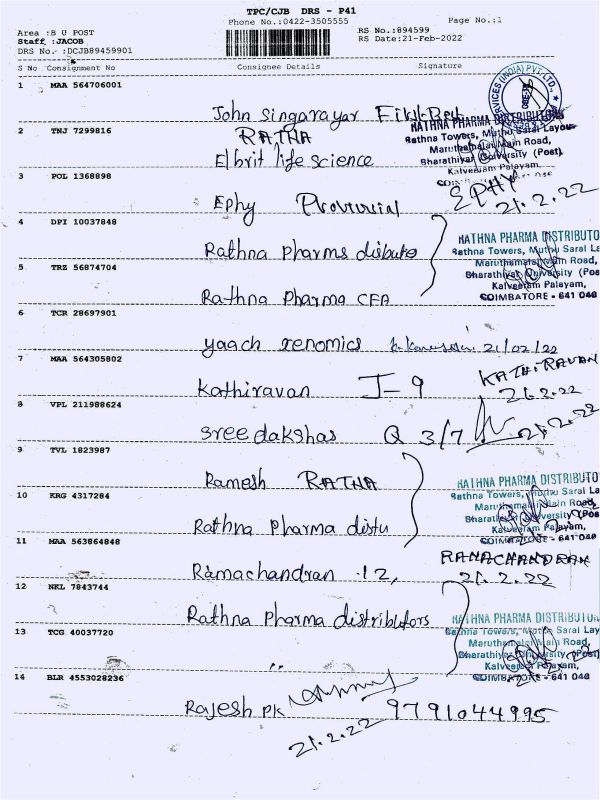 TPC/CJB DRS - P41
Phone No.:0422-3505555
Page No.:1
Area :B U POST
Staff :JACOB
DRS No. :DCJB89459901
RS No.:894599
RS Date:21-Feb-2022
S No Consignment No Consignee Details Signature
1 MAA 564706001
John Singarayar
2 TNJ 7299816
RATNA
Elbrit life science
RATHNA PHARMA DISTRIBUTORS
Rathna Towers, Muthu Saral Layout
Maruthamalai Main Road,
Bharathiyar University (Post)
Kalveeram Palayam,
3 POL 1368898
Ephy Provinsial
EPHY
21.2.22
4 DPI 10037848
Rathna pharms disbute
5 TRZ 56874704
Rathna Pharma CFA
RATHNA PHARMA DISTRIBUTO
Rathna Towers, Muthu Saral La
Maruthamalai Main Road,
Bharathiyar University (Pos
Kalveeram Palayam,
COIMBATORE - 641 046
6 TCR 28697901
yaach xenomics 21/02/22
7 MAA 564305802
Kathiravan J-9
KATHIRAVAN
21.2.22
8 VPL 211988624
sree dakshas Q 3/7
21.2.22
9 TVL 1823987
Ramesh RATNA
10 KRG 4317284
Rathna Pharma distu
RATHNA PHARMA DISTRIBUTO
Rathna Towers, Muthu Saral La
Maruthamalai Main Road,
Bharathiyar University (Pos
Kalveeram Palayam,
COIMBATORE - 641 046
11 MAA 563864848
Ramachandran 12,
RAMACHANDRAN
21.2.22
12 NKL 7843744
Rathna Pharma distributors
13 TCG 40037720
,,
RATHNA PHARMA DISTRIBUTOR
Rathna Towers, Muthu Saral Lay
Maruthamalai Main Road,
Bharathiyar University (Post
Kalveeram Palayam,
COIMBATORE - 641 046
14 BLR 4553028236
Rajesh PK 9791044995
21.2.22